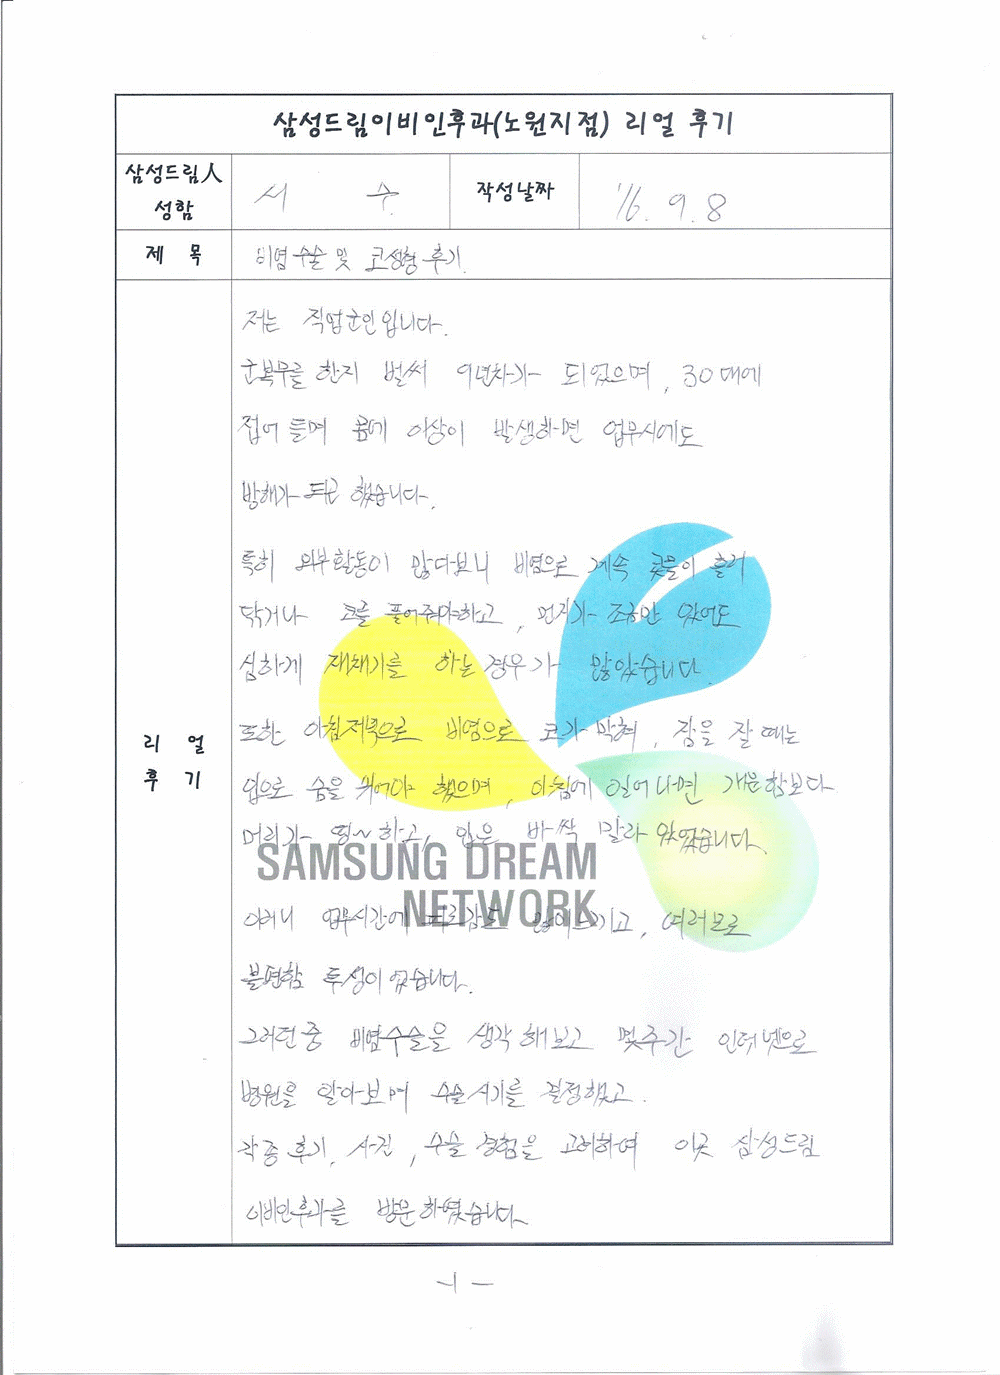 삼성드림이비인후과(노원지점) 리얼 후기
삼성드림人
성함
서 수
작성날짜
'16. 9. 8
제 목
비염수술 및 코성형 후기.
리 얼
후 기
저는 직업군인입니다.
군복무를 한지 벌써 9년차가 되었으며, 30대에
접어 들며 몸에 이상이 발생하면 업무시에도
방해가 되곤 했습니다.
특히 외부활동이 많다보니 비염으로 계속 콧물이 흘러
닦거나 코를 풀어줘야하고, 먼지가 조금만 있어도
심하게 재채기를 하는 경우가 많았습니다.
또한 아침저녁으로 비염으로 코가 막혀, 잠을 잘 때는
입으로 숨을 쉬어야 했으며, 아침에 일어나면 개운함보다
머리가 띵~하고, 입은 바싹 말라 있었습니다.
SAMSUNG DREAM
NETWORK
이러니 업무시간에 피로감도 많이 느끼고, 여러모로
불편함 투성이였습니다.
그러던 중 비염수술을 생각해보고 몇주간 인터넷으로
병원을 알아보며 수술시기를 결정했고.
각종 후기, 사진, 수술 경험을 고려하여 이곳 삼성드림
이비인후과를 방문하였습니다.
- 1 -